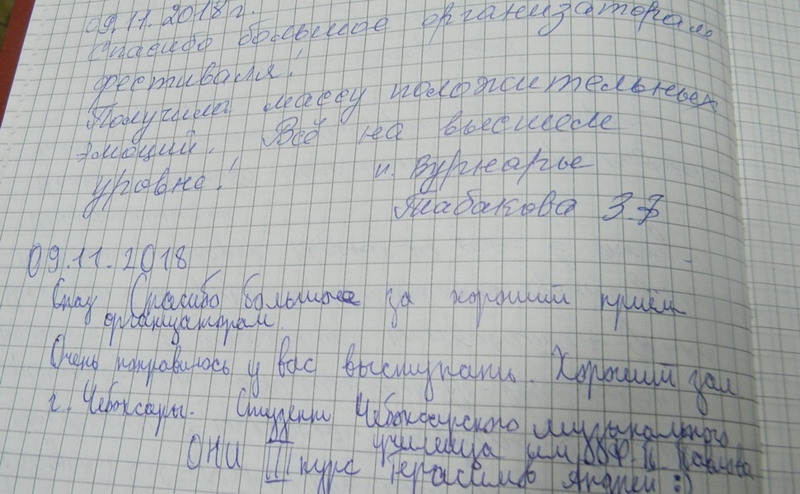 09.11.2018 г.
Спасибо большое организаторам
фестиваля!
Получила массу положительных
эмоций. Всё на высшем
уровне! п. Вурнары
Табакова З.Ф
09.11.2018
Спау Спасибо большое за хороший приём
организаторам.
Очень понравилось у вас выступать. Хороший зал
г. Чебоксары. Студент Чебоксарского музыкального
училища им. Ф.П. Павлова
ОНИ III курс Герасимов Андрей :)